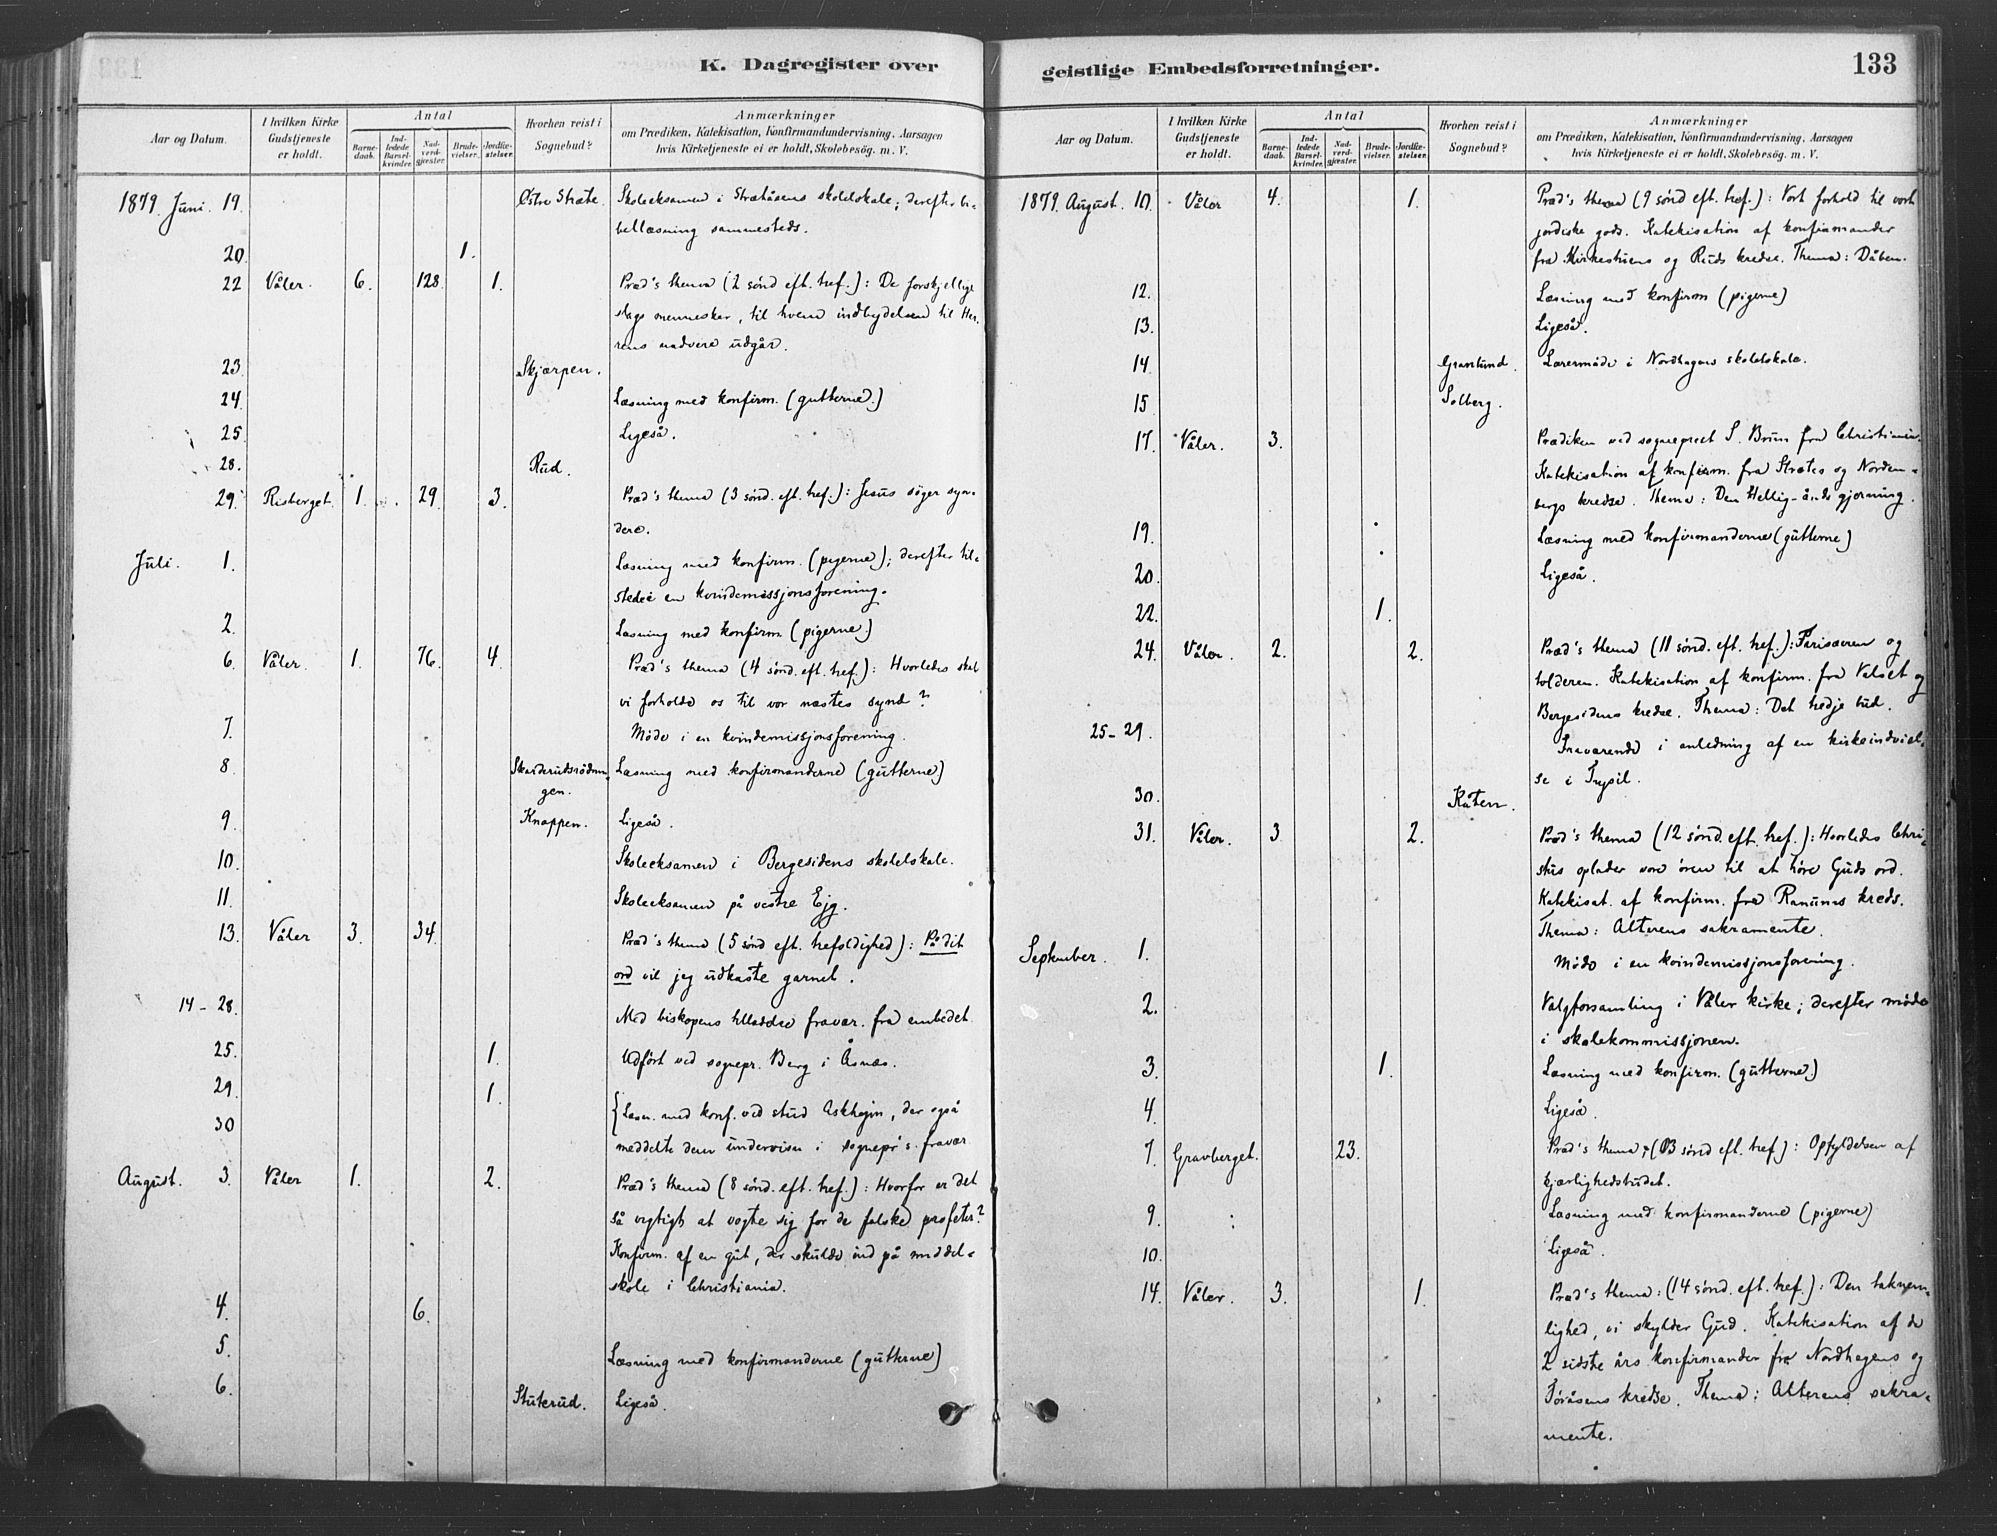 K. Dagregister over
Aar og Datum.
I hvilken Kirke Gudstjeneste er holdt.
Antal
Barnedaab.
Indledede Barselkvinder.
Nadverdgjæster.
Brudevielser.
Jordfæstelser.
Hvorhen reist i Sognebud?
Anmærkninger
om Prædiken, Katekisation, Konfirmandundervisning, Aarsagen
hvis Kirketjeneste ei er holdt, Skolebesög. m. V.
1879. Juni. 19. Østre Stræte. Skoleeksamen i Stræteåsens skolelokale; derefter bi-
bellæsning sammesteds.
20. 1.
22 Våler. 6. 128. 1. Præd's thema (2 sönd eft. tref.): De forskjellige
slags mennesker, til hvem indbydelsen til Her-
rens nadvere udgår.
23 Skjærpen.
24. Læsning med konfirm. (gutterne.)
25 Ligeså.
28. Rud.
29. Risberget. 1. 29. 3. Præd's thema (3 sönd. eft. tref.): Jesus söger syn-
dere.
Juli. 1. Læsning med konfirm. (pigerne); derefter til-
stede i en kvindemissjonsforening.
2. Læsning med konfirm. (pigerne)
6. Våler. 1. 76. 4. Præd's thema (4 sönd. eft. tref.): Hvorledes skal
vi forholde os til vor næstes synd?
7. Möde i en kvindemissjonsforening.
8 Læsning med konfirmanderne (gutterne)
gen.
9. Knappen. Ligeså.
10. Skoleeksamen i Bergesidens skolelokale.
11. Skoleeksamen på vestre Ejg.
13. Våler 3. 34. Præd's thema (5 sönd eft. trefoldighed): På dit
ord vil jeg udkaste garnet.
14-28. Med biskopens tilladelse fravær. fra embedet
25. 1. Udfört ved sognepr. Berg i Åsnæs.
29. 1.
30 Læsn. med konf. ved stud Askhejm, der også
meddelte dem undervisn i sognepr's fravær
August. 3. Våler 1. 2. Præd's thema (8 sönd. eft. tref.): Hvorfor er det
så vigtigt at vogte sig for de falske profeter?
Konfirm. af en gut, der skulde ind på middel-
skole i Christiania.
4. 6.
5. Læsning med konfirmanderne (gutterne)
6. Stuterud. Ligeså.
geistlige Embedsforretninger.
133
Aar og Datum.
I hvilken Kirke Gudstjeneste er holdt.
Antal
Barnedaab.
Indledede Barselkvinder.
Nadverdgjæster.
Brudevielser.
Jordfæstelser.
Hvorhen reist i Sognebud?
Anmærkninger
om Prædiken, Katekisation, Konfirmandundervisning, Aarsagen
hvis Kirketjeneste ei er holdt, Skolebesög. m. V.
1879. August. 10. Våler 4. 1. Præd's thema (9 sönd eft. tref.): Vort forhold til vort
jordiske gods. Katekisation af konfirmander
fra Kirkestuens og Ruds kredse. Thema: Dåben.
12. Læsning med konfirm (pigerne)
13. Ligeså.
14 Granlund. Lærermöde i Nordhagens skolelokale.
15 Solberg.
17. Våler. 3. Prædiken ved sogneprest S. Brun fra Christiania.
Katekisation af konfirm. fra Strætes og Nordem-
bergs kredse. Thema: Den Hellig-ånds gjerning.
19. Læsning med konfirmanderne (gutterne)
20. Ligeså.
22. 1.
24. Våler. 2. 2. Præd's thema (11 sönd. eft. tref.): Farisæeren og
tolderen. Katekisation af konfirm. fra Valset og
Bergesidens kredse. Thema: Det tredje bud.
25-29. Fraværende i anledning af en kirkeindviel-
se i Trysil.
30. Kåten.
31. Våler. 3 2. Præd's thema (12 sönd. eft. tref.): Hvorledes Chri-
stus oplader vore ören til at höre Guds ord.
Katekisat. af konfirm. fra Ranums kreds.
Thema: Alterens sakramente.
September. 1. Möde i en kvindemissjonsforening.
2. Valgforsamling i Våler kirke; derefter möde
i skolekommissjonen.
3. 1. Læsning med konfirm. (gutterne.)
4. Ligeså.
7. Gravberget. 23. Præd's thema (13 sönd eft. tref.): Opfyldelsen af
kjærlighedsbudet.
9. Læsning med konfirmanderne (pigerne)
10. Ligeså.
14. Våler. 3. 1. Præd's thema: (14 sönd. eft. tref.): Den taknem-
lighed, vi skylder Gud. Katekisation af de
2 sidste års konfirmander fra Nordhagens og
kredse. Thema: Alterens sakra-
mente.